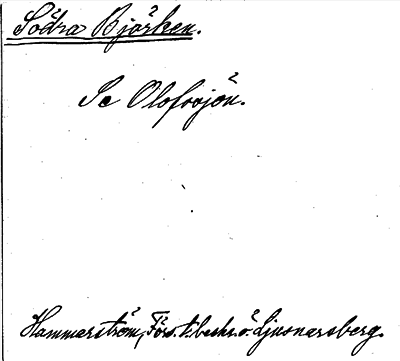 Södra Björken.
Se Olofsjön.
Hammarström, Förs. t. beskr. ö. Ljusnarsberg.